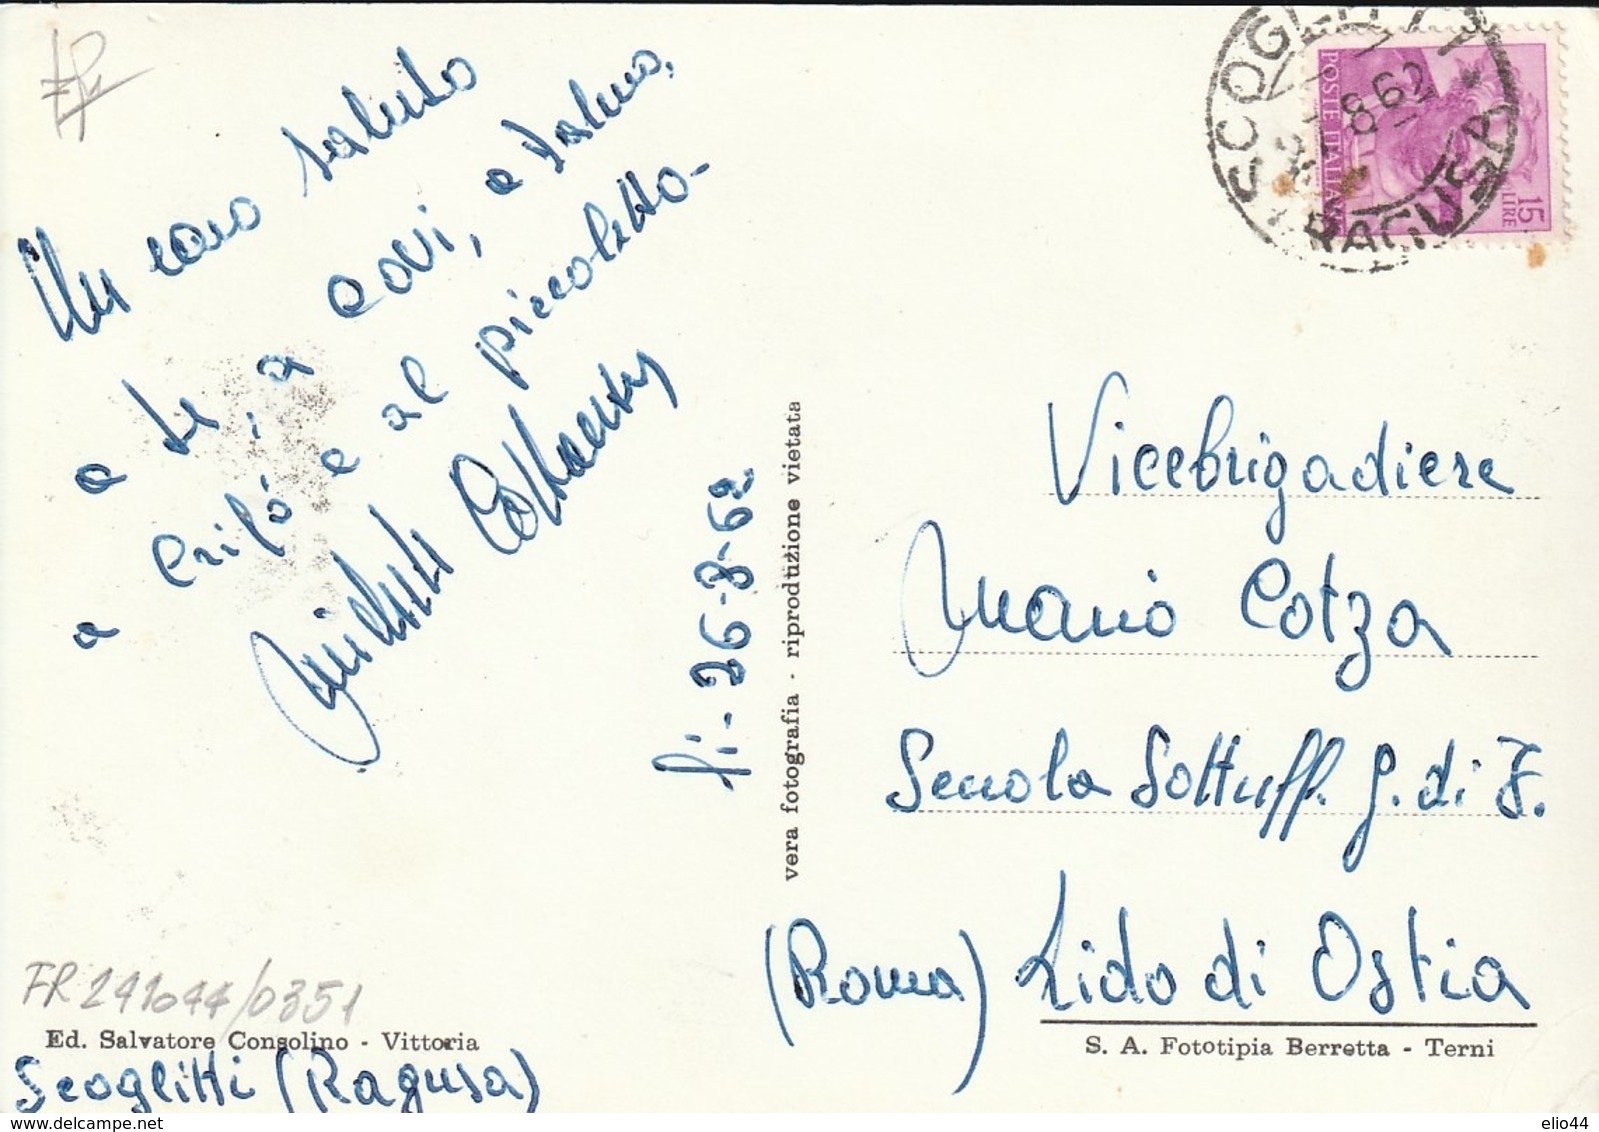 Un caro saluto
a te, a Covi, e Dalma,
a Crilò e al piccoletto-
li- 26-8-62
vera fotografia - riproduzione vietata
SCOGLITTI
RAGUSA
8 62
POSTE ITALIANE
15 LIRE
Vicebrigadiere
Mario Cotza
Scuola Sottuff. G. di F.
Lido di Ostia
(Roma)
FR 241044/0351
Ed. Salvatore Consolino - Vittoria
Scoglitti (Ragusa)
S. A. Fototipia Berretta - Terni
elio44